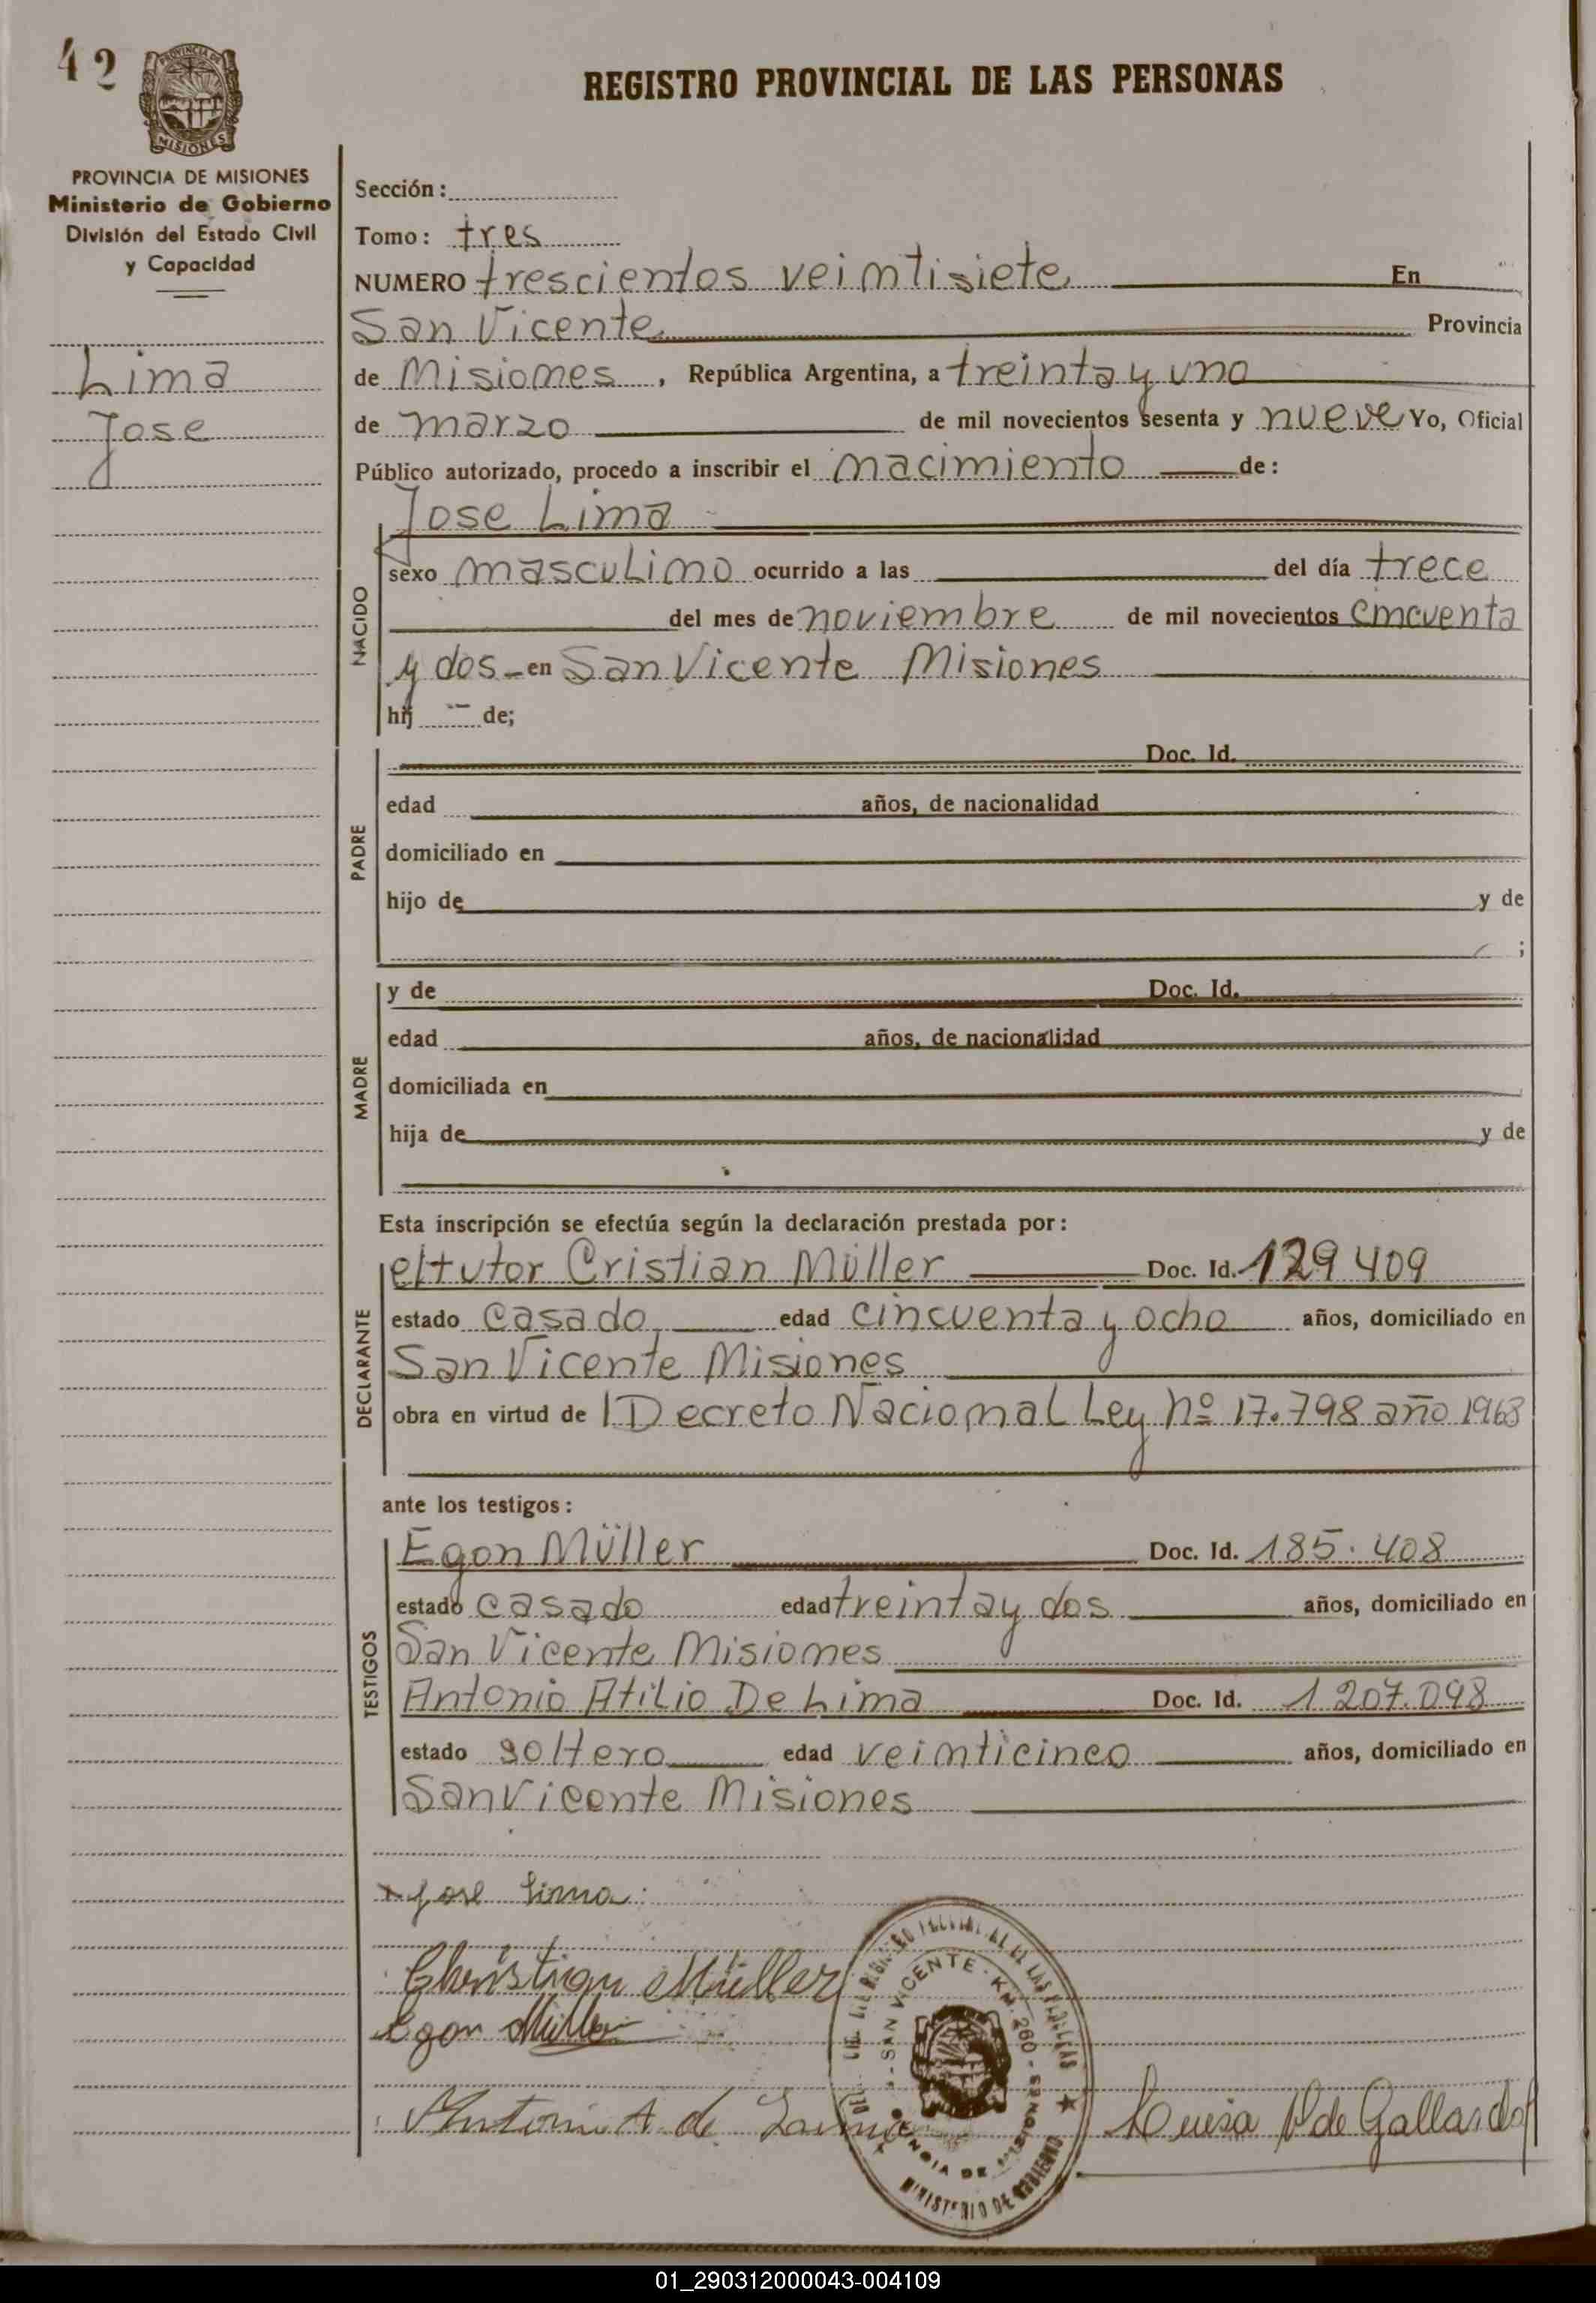 42
PROVINCIA DE
MISIONES
REGISTRO PROVINCIAL DE LAS PERSONAS
PROVINCIA DE MISIONES
Ministerio de Gobierno
División del Estado Civil
y Capacidad
Lima
Jose
Sección:
Tomo: tres
NUMERO trescientos veintisiete En
San Vicente Provincia
de Misiones, República Argentina, a treinta y uno
de marzo de mil novecientos sesenta y nueve Yo, Oficial
Público autorizado, procedo a inscribir el nacimiento de:
NACIDO
Jose Lima
sexo masculino ocurrido a las del día trece
del mes de noviembre de mil novecientos cincuenta
y dos - en San Vicente Misiones
hij - de;
PADRE
Doc. Id.
edad años, de nacionalidad
domiciliado en
hijo de y de
;
MADRE
y de Doc. Id.
edad años, de nacionalidad
domiciliada en
hija de y de
Esta inscripción se efectúa según la declaración prestada por:
DECLARANTE
el tutor Cristian Müller Doc. Id. 129409
estado casado edad cincuenta y ocho años, domiciliado en
San Vicente Misiones
obra en virtud de Decreto Nacional Ley nº 17.798 año 1968
ante los testigos:
TESTIGOS
Egon Müller Doc. Id. 185.408
estado casado edad treinta y dos años, domiciliado en
San Vicente Misiones
Antonio Atilio De Lima Doc. Id. 1207.098
estado soltero edad veinticinco años, domiciliado en
San Vicente Misiones
x Jose Lima
Christian Müller
Egon Müller
Antonio A. de Lima
SAN VICENTE - KM. 260
MINISTERIO DE GOBIERNO
Luisa V de Gallardo
01_290312000043-004109